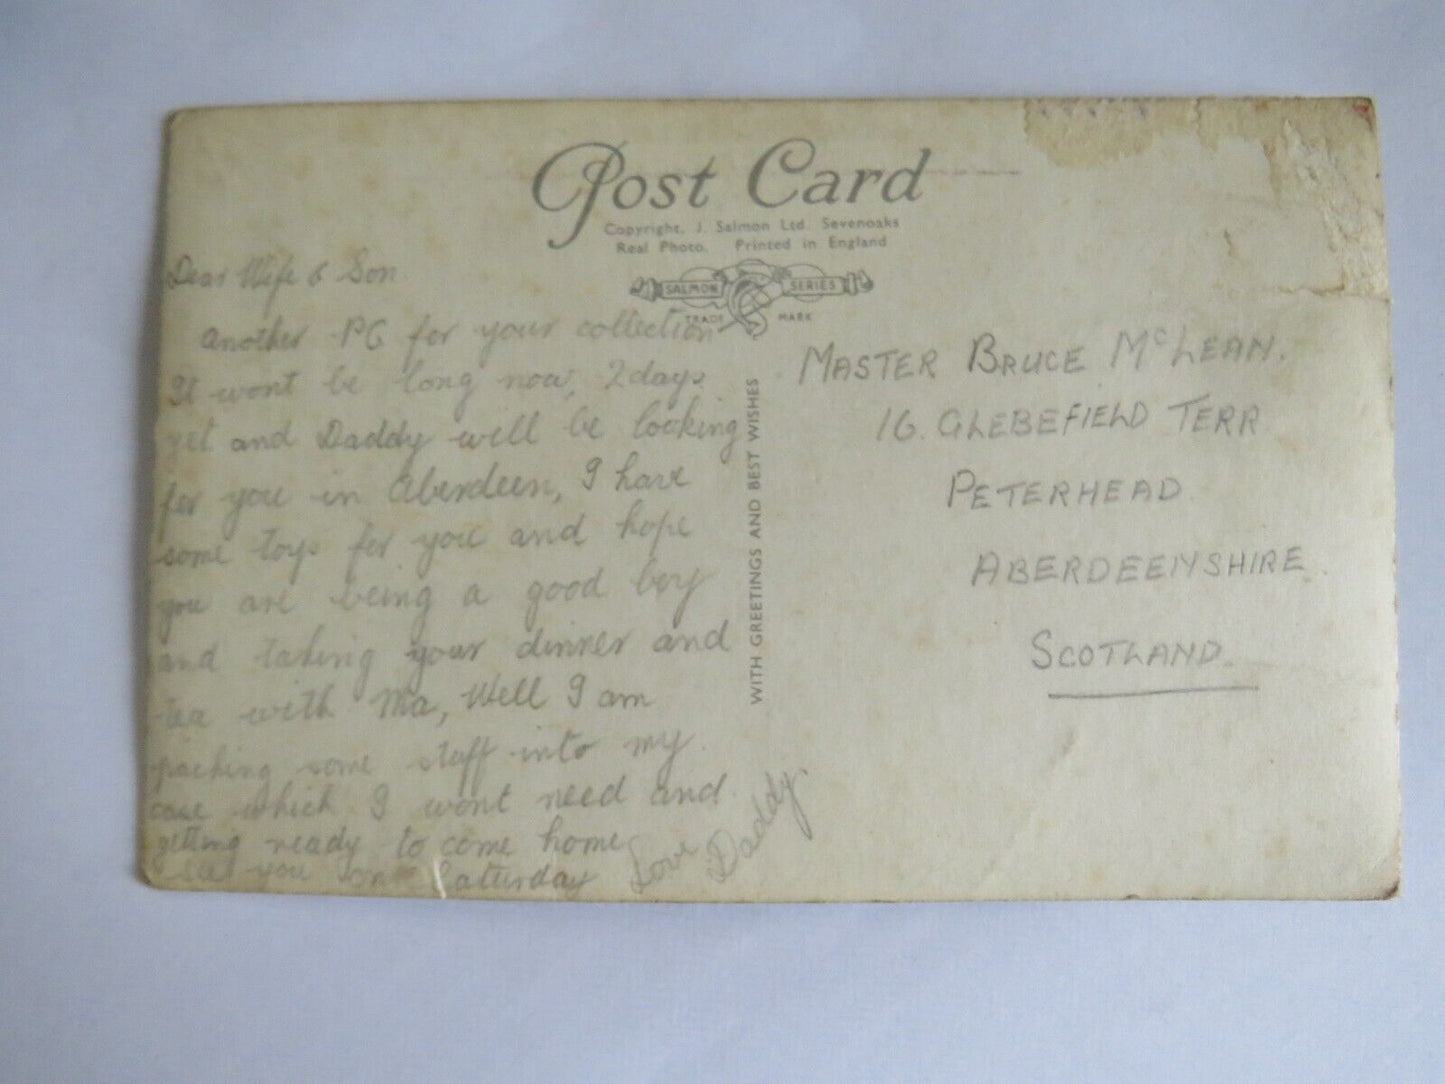 Post Card
Copyright. J. Salmon Ltd. Sevenoaks
Real Photo. Printed in England
SALMON SERIES
TRADE MARK
Dear Wife & Son
Another PC for your collection
It wont be long now, 2 days
yet and Daddy will be looking
for you in Aberdeen, I have
some toys for you and hope
you are being a good boy
and taking your dinner and
tea with Ma, Well I am
packing some stuff into my
case which I wont need and
getting ready to come home
see you on Saturday
Love Daddy.
WITH GREETINGS AND BEST WISHES
MASTER BRUCE McLEAN.
16. GLEBEFIELD TERR
PETERHEAD.
ABERDEENSHIRE.
SCOTLAND.